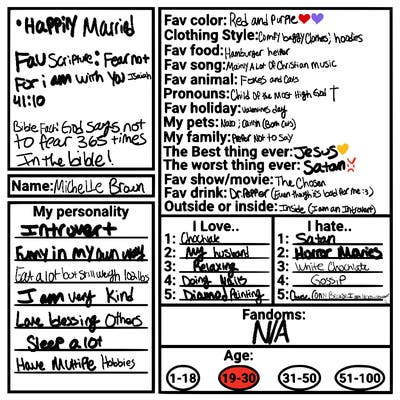 • Happily Married
Fav Scripture: Fear not
For i am with you Isaiah
41:10
Bible Fact: God says not
to fear 365 times
In the bible!
Name: Michelle Brown
My personality
Introvert
Funny in my own way
Eat a lot but still weigh
I am very Kind
Love blessing Others
Sleep a lot
Have Multiple Hobbies
Fav color: Red and Purple ❤️💜
Clothing Style: Comfy baggy Clothes, hoodies
Fav food: Hamburger helper
Fav song: Mainly A Lot Of Christian music
Fav animal: Foxes and Cats
Pronouns: Child Of the Most High God ✝
Fav holiday: Valentines day
My pets: (Both Cats)
My family: Prefer Not to Say
The Best thing ever: Jesus 💛
The worst thing ever: Satan 💢
Fav show/movie: The Chosen
Fav drink: Dr.Pepper (Even though its bad for me :3)
Outside or inside: Inside (I am an Introvert)
I Love..
1: Chocolate
2: My husband
3: Relaxing
4: Doing Nails
5: Diamond Painting
I hate..
1: Satan
2: Horror Movies
3: White Chocolate
4: Gossip
5:
Fandoms:
N/A
Age:
1-18
19-30
31-50
51-100